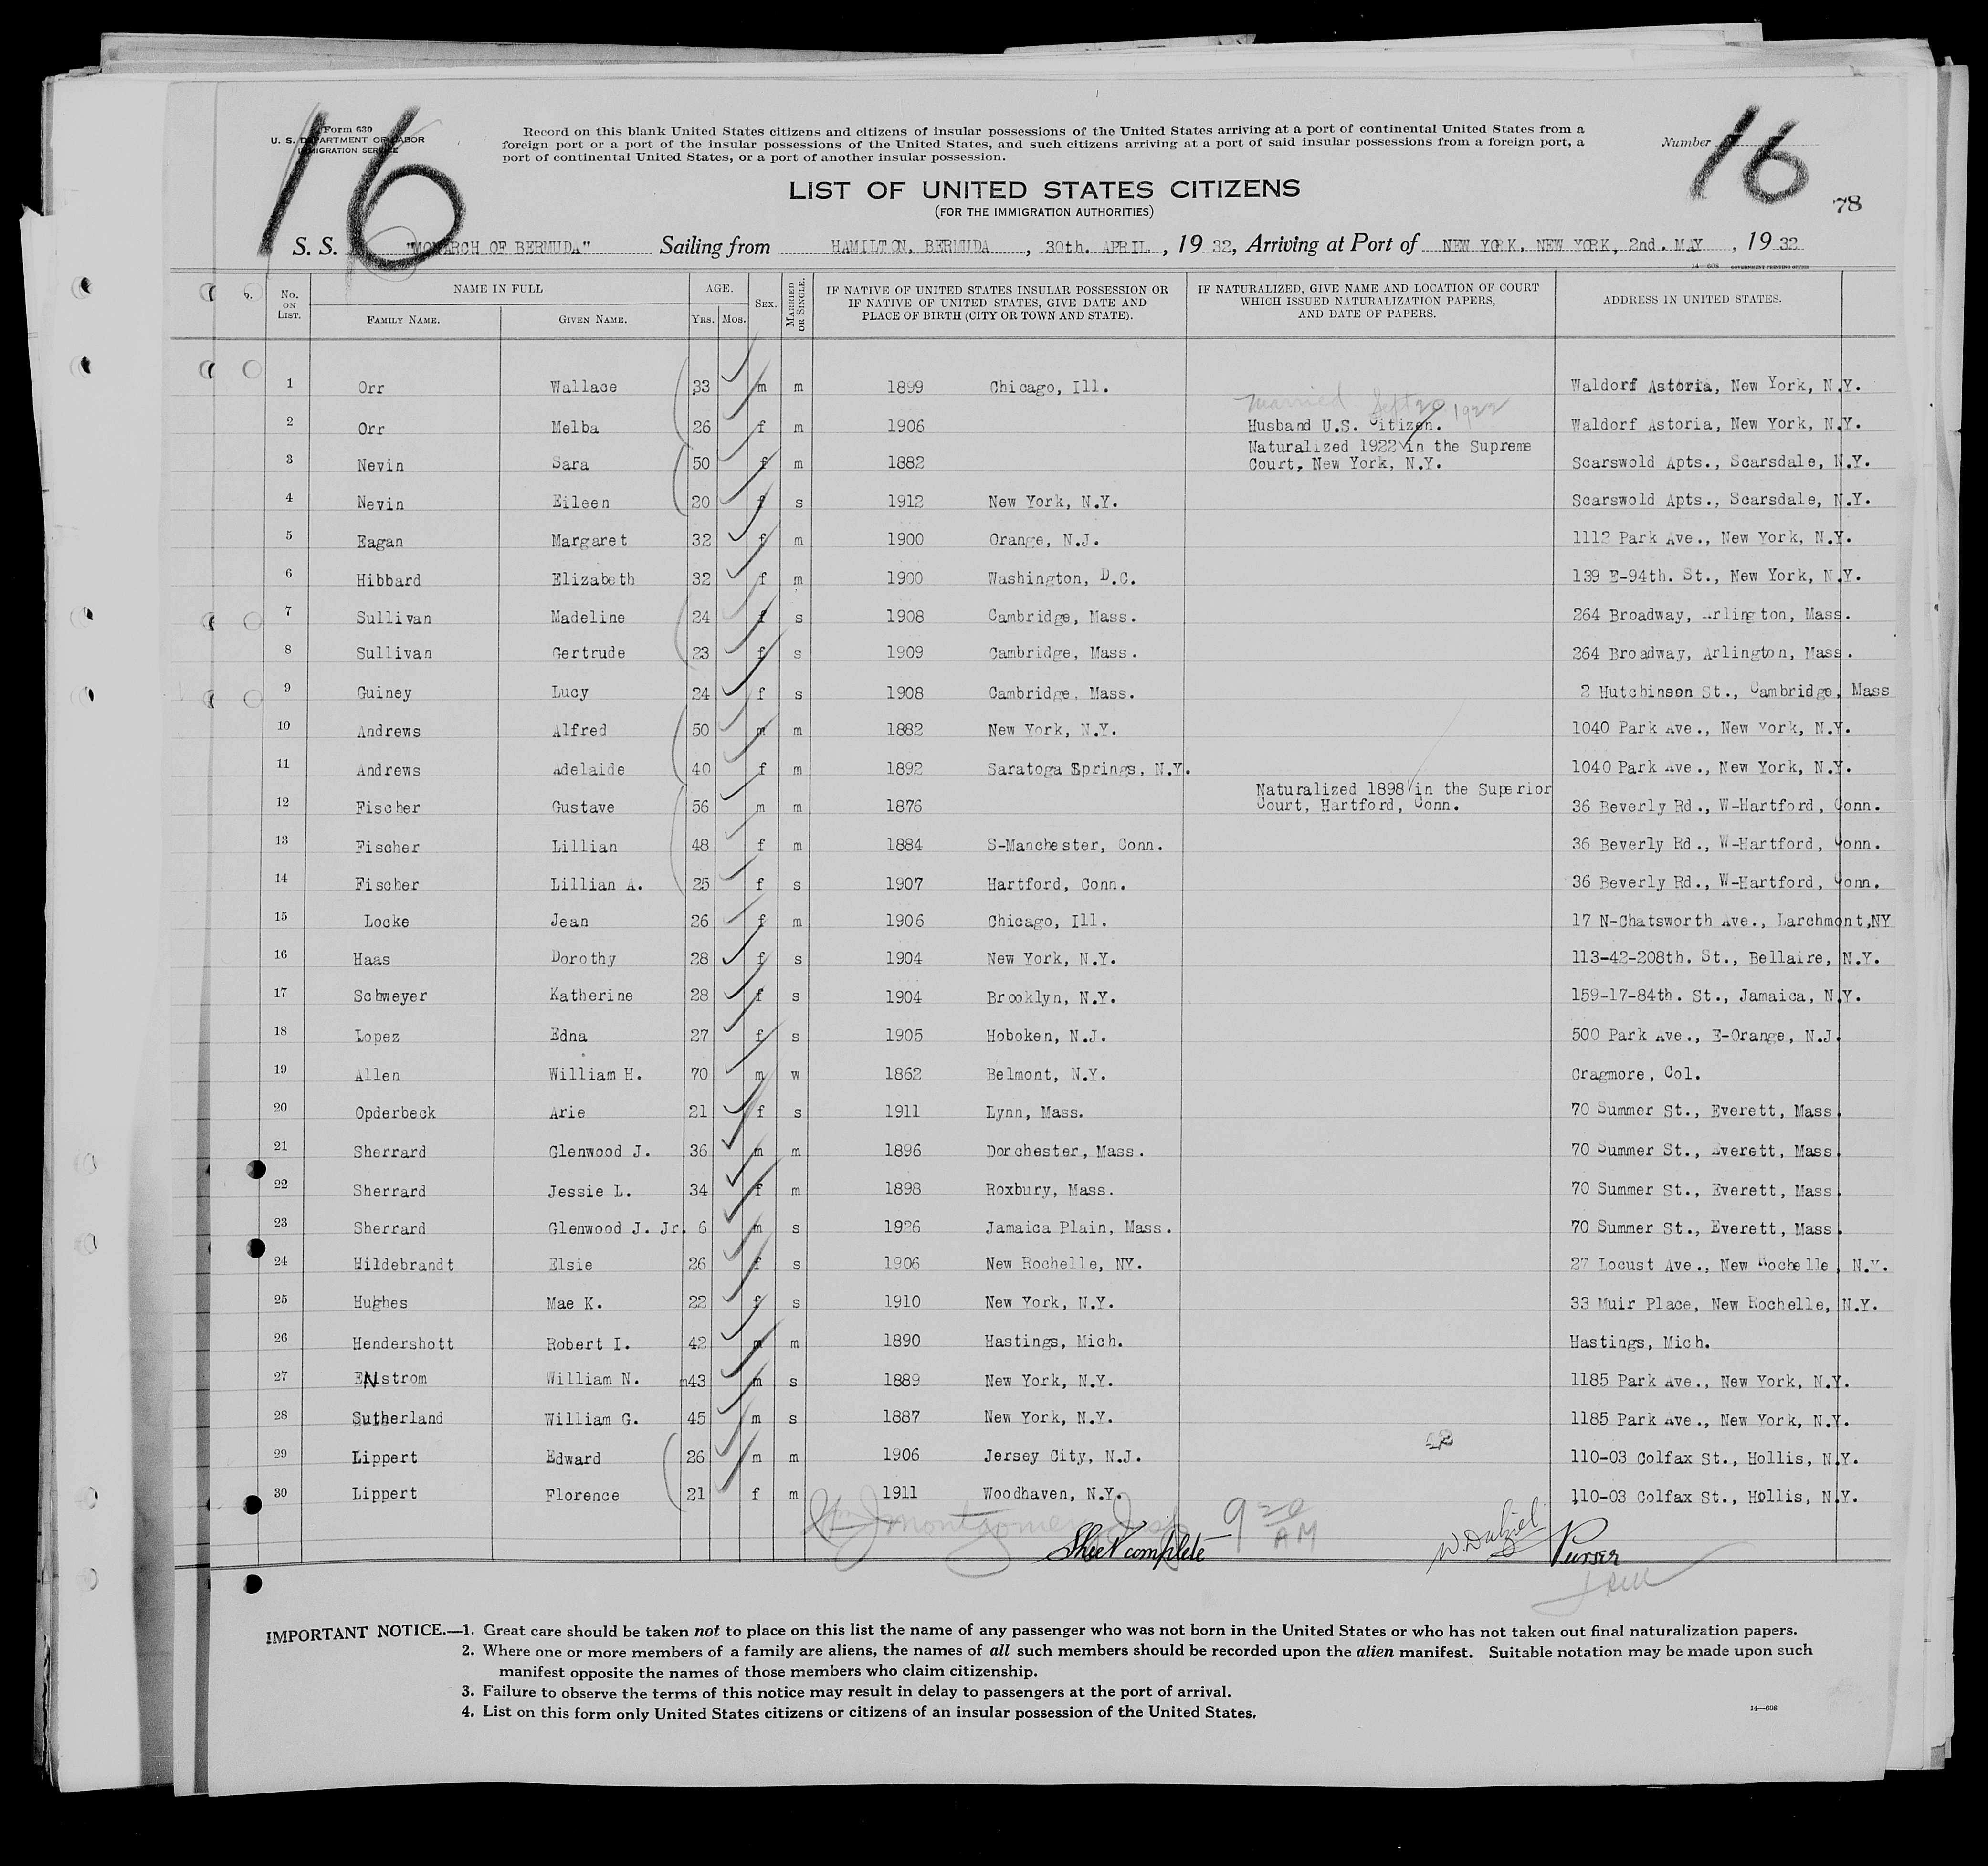 16
Form 630
U. S. DEPARTMENT OF LABOR
IMMIGRATION SERVICE
Record on this blank United States citizens and citizens of insular possessions of the United States arriving at a port of continental United States from a
foreign port or a port of the insular possessions of the United States, and such citizens arriving at a port of said insular possessions from a foreign port, a
port of continental United States, or a port of another insular possession.
Number 16
78
LIST OF UNITED STATES CITIZENS
(FOR THE IMMIGRATION AUTHORITIES)
S. S. "MONARCH OF BERMUDA" Sailing from HAMILTON, BERMUDA, 30th. APRIL, 1932, Arriving at Port of NEW YORK, NEW YORK, 2nd. MAY, 1932
14—608 GOVERNMENT PRINTING OFFICE
No. ON LIST. NAME IN FULL FAMILY NAME. GIVEN NAME. AGE. YRS. MOS. SEX. MARRIED OR SINGLE. IF NATIVE OF UNITED STATES INSULAR POSSESSION OR IF NATIVE OF UNITED STATES, GIVE DATE AND PLACE OF BIRTH (CITY OR TOWN AND STATE). IF NATURALIZED, GIVE NAME AND LOCATION OF COURT WHICH ISSUED NATURALIZATION PAPERS, AND DATE OF PAPERS. ADDRESS IN UNITED STATES.
1 Orr Wallace 33 m m 1899 Chicago, Ill. Waldorf Astoria, New York, N.Y.
married Sept 20 1922
2 Orr Melba 26 f m 1906 Husband U.S. Citizen. Waldorf Astoria, New York, N.Y.
Naturalized 1922 in the Supreme
3 Nevin Sara 50 f m 1882 Court, New York, N.Y. Scarswold Apts., Scarsdale, N.Y.
4 Nevin Eileen 20 f s 1912 New York, N.Y. Scarswold Apts., Scarsdale, N.Y.
5 Eagan Margaret 32 f m 1900 Orange, N.J. 1112 Park Ave., New York, N.Y.
6 Hibbard Elizabeth 32 f m 1900 Washington, D.C. 139 E-94th. St., New York, N.Y.
7 Sullivan Madeline 24 f s 1908 Cambridge, Mass. 264 Broadway, Arlington, Mass.
8 Sullivan Gertrude 23 f s 1909 Cambridge, Mass. 264 Broadway, Arlington, Mass.
9 Guiney Lucy 24 f s 1908 Cambridge, Mass. 2 Hutchinson St., Cambridge, Mass
10 Andrews Alfred 50 m m 1882 New York, N.Y. 1040 Park Ave., New York, N.Y.
11 Andrews Adelaide 40 f m 1892 Saratoga Springs, N.Y. 1040 Park Ave., New York, N.Y.
Naturalized 1898 in the Superior
12 Fischer Gustave 56 m m 1876 Court, Hartford, Conn. 36 Beverly Rd., W-Hartford, Conn.
13 Fischer Lillian 48 f m 1884 S-Manchester, Conn. 36 Beverly Rd., W-Hartford, Conn.
14 Fischer Lillian A. 25 f s 1907 Hartford, Conn. 36 Beverly Rd., W-Hartford, Conn.
15 Locke Jean 26 f m 1906 Chicago, Ill. 17 N-Chatsworth Ave., Larchmont,NY
16 Haas Dorothy 28 f s 1904 New York, N.Y. 113-42-208th. St., Bellaire, N.Y.
17 Schweyer Katherine 28 f s 1904 Brooklyn, N.Y. 159-17-84th. St., Jamaica, N.Y.
18 Lopez Edna 27 f s 1905 Hoboken, N.J. 500 Park Ave., E-Orange, N.J.
19 Allen William H. 70 m w 1862 Belmont, N.Y. Cragmore, Col.
20 Opderbeck Arie 21 f s 1911 Lynn, Mass. 70 Summer St., Everett, Mass.
21 Sherrard Glenwood J. 36 m m 1896 Dorchester, Mass. 70 Summer St., Everett, Mass.
22 Sherrard Jessie L. 34 f m 1898 Roxbury, Mass. 70 Summer St., Everett, Mass.
23 Sherrard Glenwood J. Jr. 6 m s 1926 Jamaica Plain, Mass. 70 Summer St., Everett, Mass.
24 Hildebrandt Elsie 26 f s 1906 New Rochelle, NY. 27 Locust Ave., New Rochelle, N.Y.
25 Hughes Mae K. 22 f s 1910 New York, N.Y. 33 Muir Place, New Rochelle, N.Y.
26 Hendershott Robert I. 42 m m 1890 Hastings, Mich. Hastings, Mich.
27 ENstrom William N. m43 m s 1889 New York, N.Y. 1185 Park Ave., New York, N.Y.
28 Sutherland William G. 45 m s 1887 New York, N.Y. 1185 Park Ave., New York, N.Y.
29 Lippert Edward 26 m m 1906 Jersey City, N.J. 110-03 Colfax St., Hollis, N.Y.
30 Lippert Florence 21 f m 1911 Woodhaven, N.Y. 110-03 Colfax St., Hollis, N.Y.
Wm J Montgomery Insp 9 20 AM
Sheet complete W. Dalziel Purser
IMPORTANT NOTICE.—1. Great care should be taken not to place on this list the name of any passenger who was not born in the United States or who has not taken out final naturalization papers.
2. Where one or more members of a family are aliens, the names of all such members should be recorded upon the alien manifest. Suitable notation may be made upon such
manifest opposite the names of those members who claim citizenship.
3. Failure to observe the terms of this notice may result in delay to passengers at the port of arrival.
4. List on this form only United States citizens or citizens of an insular possession of the United States.
14—608